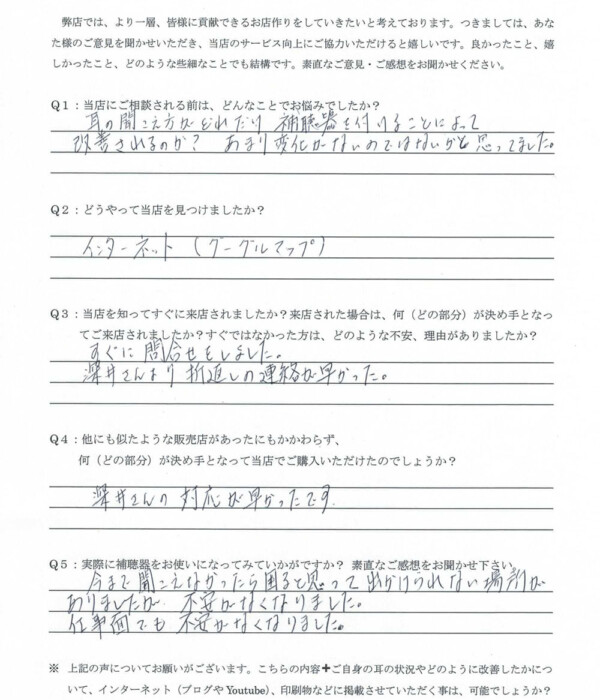 弊店では、より一層、皆様に貢献できるお店作りをしていきたいと考えております。つきましては、あな
た様のご意見を聞かせいただき、当店のサービス向上にご協力いただけると嬉しいです。良かったこと、嬉
しかったこと、どのような些細なことでも結構です。素直なご意見・ご感想をお聞かせください。
Q1：当店にご相談される前は、どんなことでお悩みでしたか？
耳の聞こえ方がどれだけ 補聴器を付けることによって
改善されるのか？ あまり変化がないのではないかと思ってました。
Q2：どうやって当店を見つけましたか？
インターネット（グーグルマップ）
Q3：当店を知ってすぐに来店されましたか？来店された場合は、何（どの部分）が決め手となっ
てご来店されましたか？すぐではなかった方は、どのような不安、理由がありましたか？
すぐに問合せをしました。
深井さんより折返しの連絡が早かった。
Q4：他にも似たような販売店があったにもかかわらず、
何（どの部分）が決め手となって当店でご購入いただけたのでしょうか？
深井さんの対応が早かったです
Q5：実際に補聴器をお使いになってみていかがですか？ 素直なご感想をお聞かせ下さい。
今まで聞こえなかったら困ると思って出かけられない場所が
ありましたが 不安がなくなりました。
仕事面でも不安がなくなりました。
※ 上記の声についてお願いがございます。こちらの内容＋ご自身の耳の状況やどのように改善したかにつ
いて、インターネット（ブログや Youtube）、印刷物などに掲載させていただく事は、可能でしょうか？